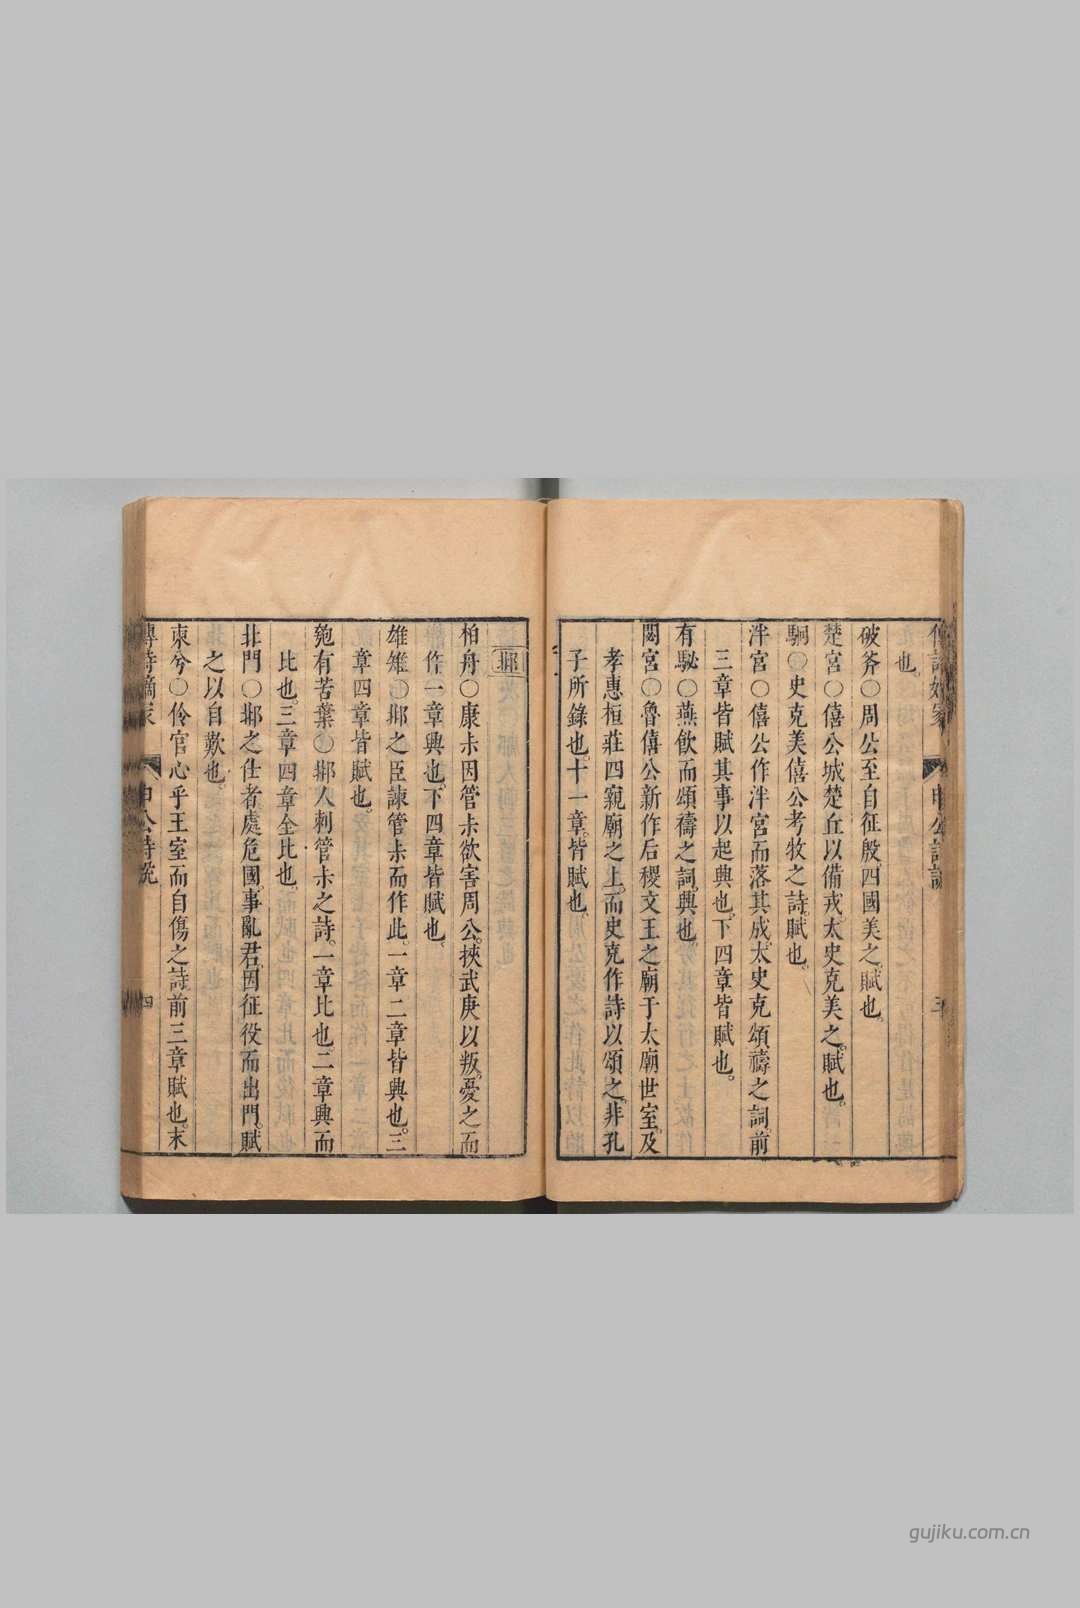 也。
破斧○周公至自征殷四國美之。賦也。
楚宮○僖公城楚丘以備戎。太史克美之。賦也。
駉○史克美僖公考牧之詩。賦也。
泮宮○僖公作泮宮而落其成。太史克頌禱之詞。前
三章皆賦其事以起興也。下四章皆賦也。
有駜○燕飲而頌禱之詞。興也。
閟宮○魯僖公新作后稷文王之廟于太廟世室。及
孝惠桓莊四親廟之上。而史克作詩以頌之。非孔
子所錄也。十一章。皆賦也。
邶
柏舟○康叔因管叔欲害周公。挾武庚以叛。憂之而
作一章興也。下四章皆賦也。
雄雉○邶之臣諫管叔而作此。一章二章皆興也。三
章四章皆賦也。
匏有苦葉○邶人刺管叔之詩。一章比也二章興而
比也。三章四章全比也。
北門○邶之仕者處危國。事亂君。因征役而出門。賦
之以自歎也。
柬兮○伶官心乎王室而自傷之詩前三章賦也。末
申公詩說
四
gujiku.com.cn